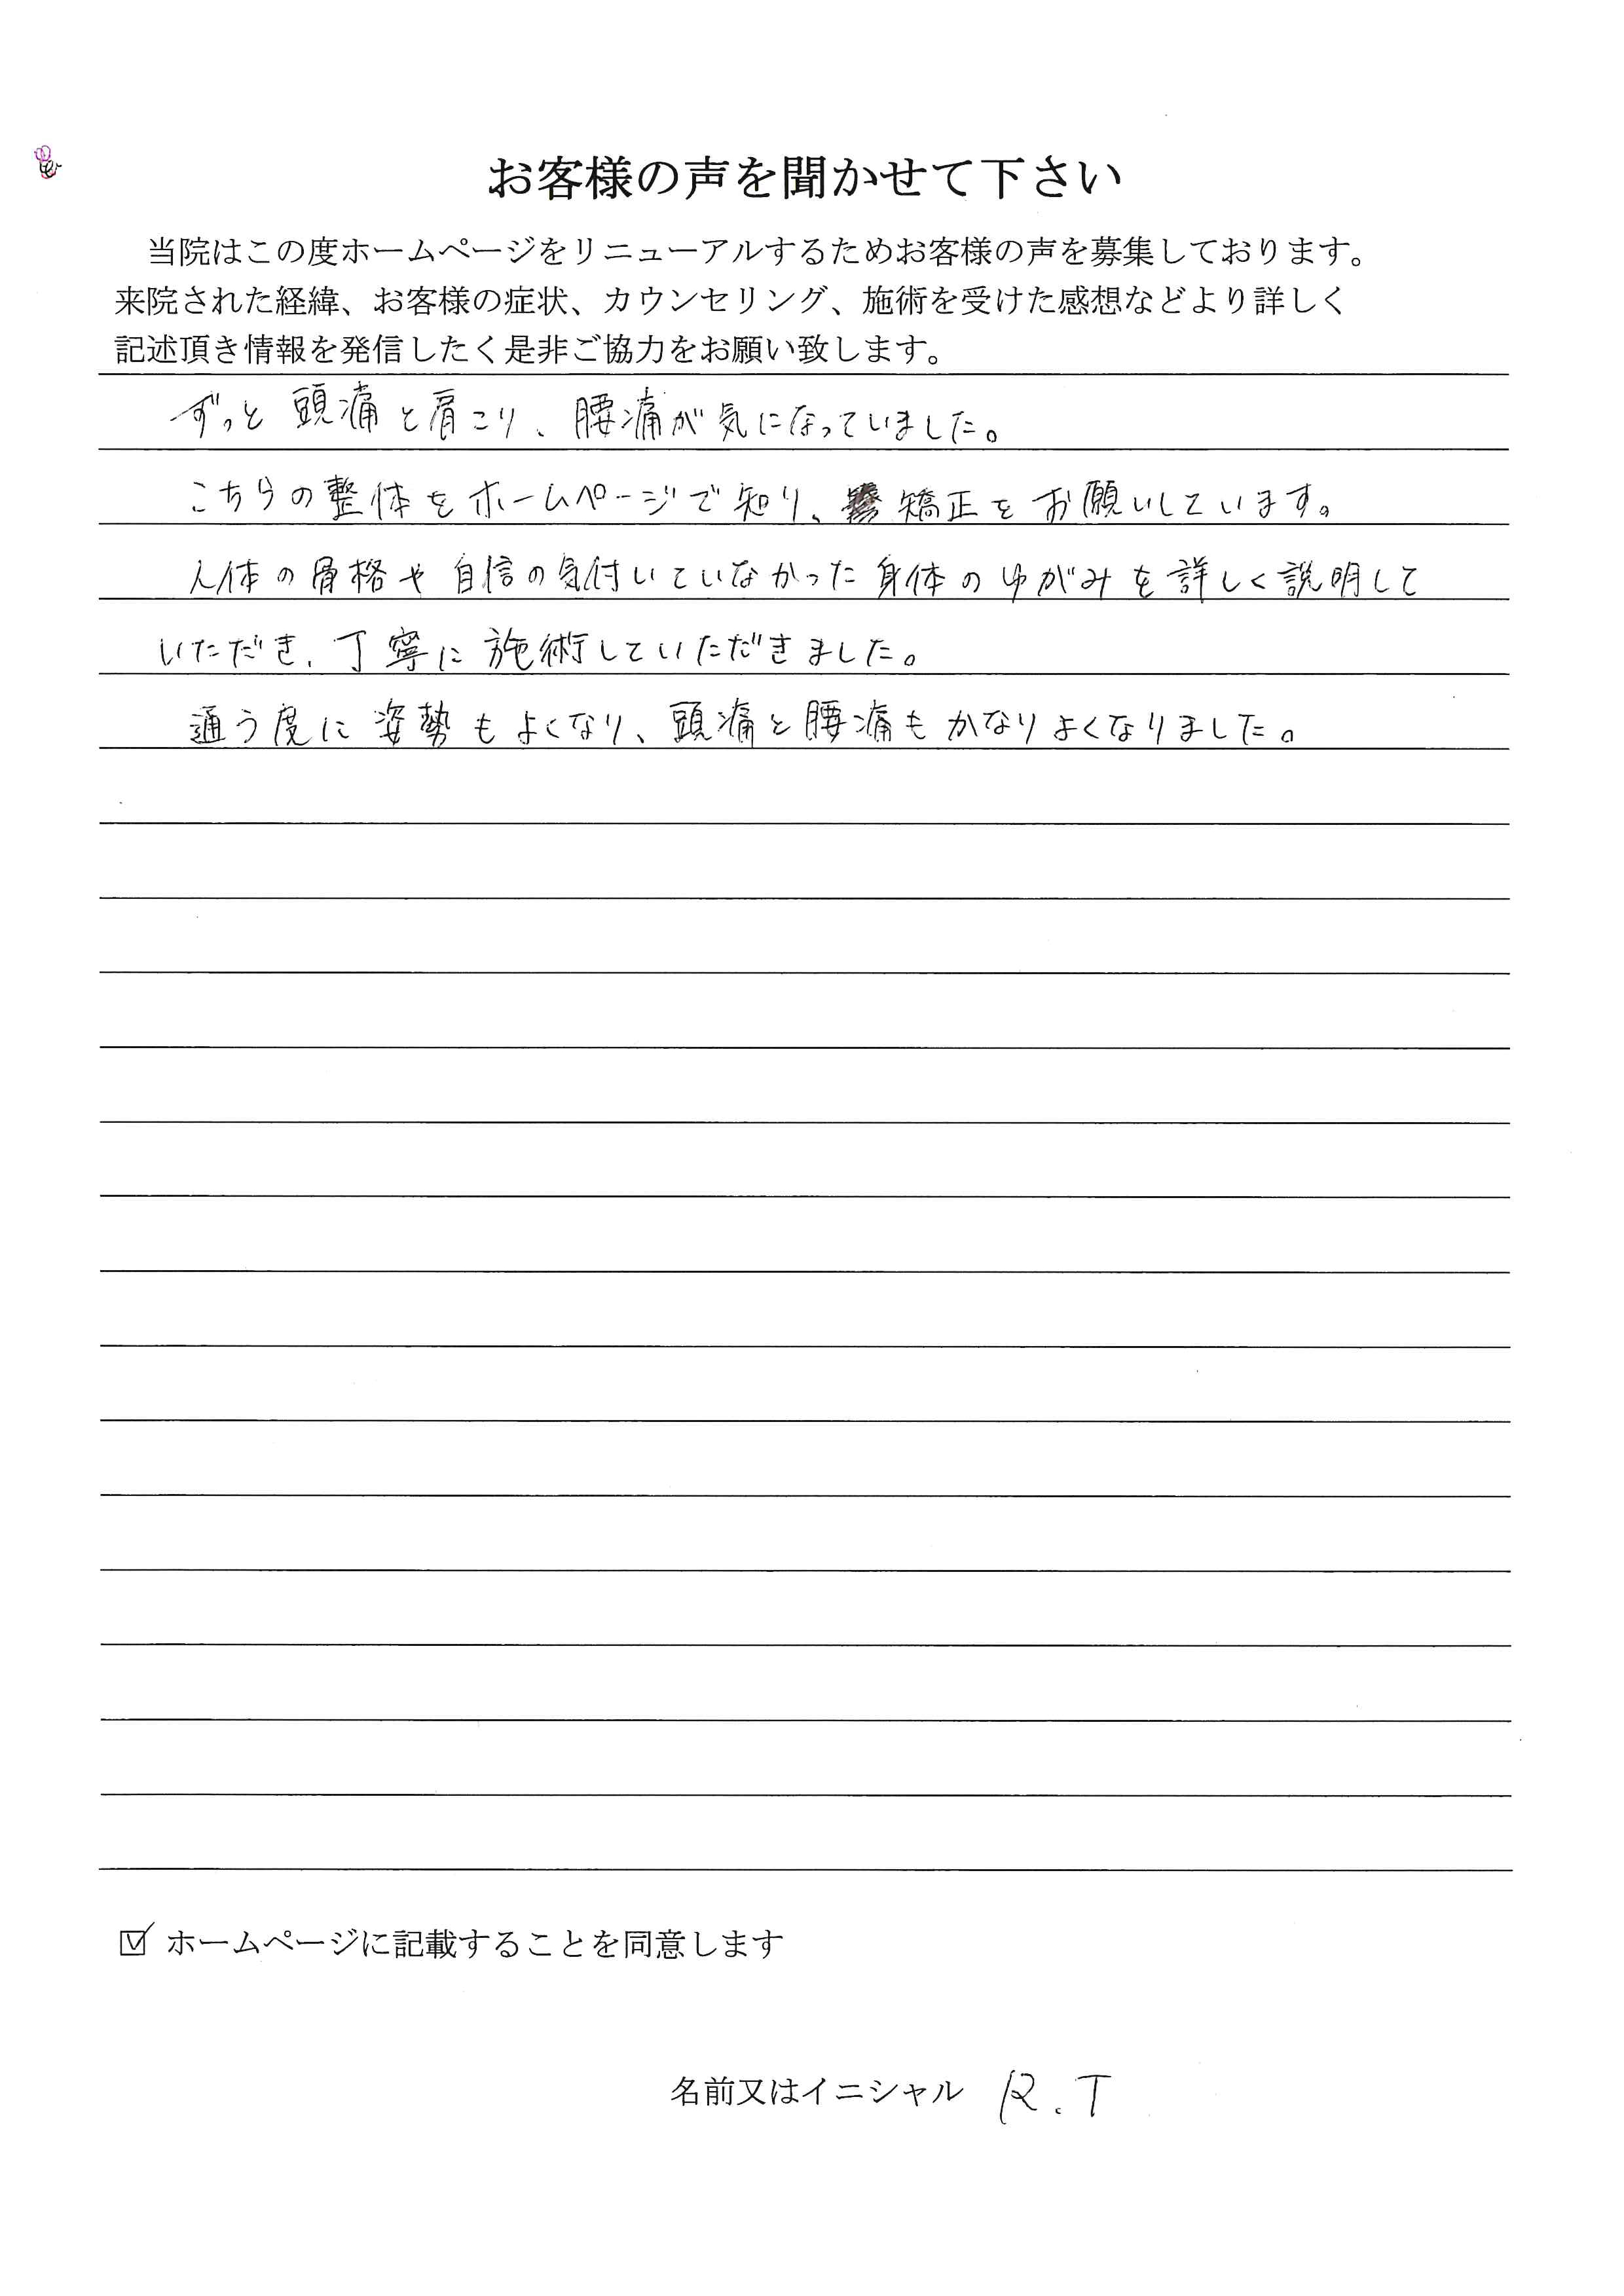 お客様の声を聞かせて下さい
当院はこの度ホームページをリニューアルするためお客様の声を募集しております。
来院された経緯、お客様の症状、カウンセリング、施術を受けた感想などより詳しく
記述頂き情報を発信したく是非ご協力をお願い致します。
ずっと頭痛と肩こり、腰痛が気になっていました。
こちらの整体をホームページで知り、矯正をお願いしています。
人体の骨格や自信の気付いていなかった身体のゆがみを詳しく説明して
いただき、丁寧に施術していただきました。
通う度に姿勢もよくなり、頭痛と腰痛もかなりよくなりました。
☑ ホームページに記載することを同意します
名前又はイニシャル R.T